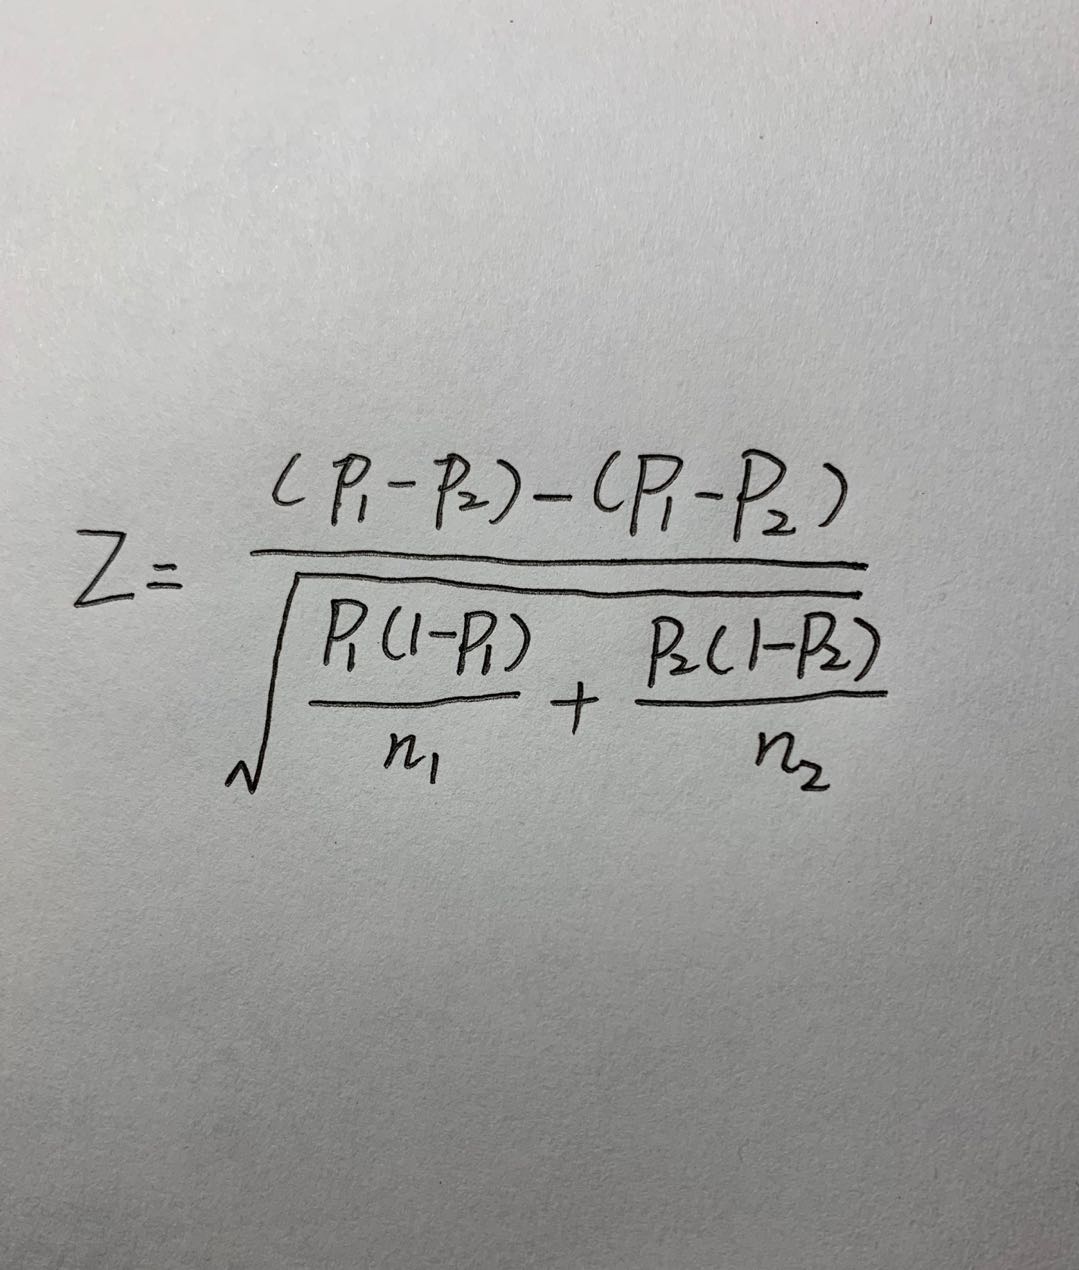 Z = \frac{(p_1 - p_2) - (P_1 - P_2)}{\sqrt{\frac{P_1(1-P_1)}{n_1} + \frac{P_2(1-P_2)}{n_2}}}